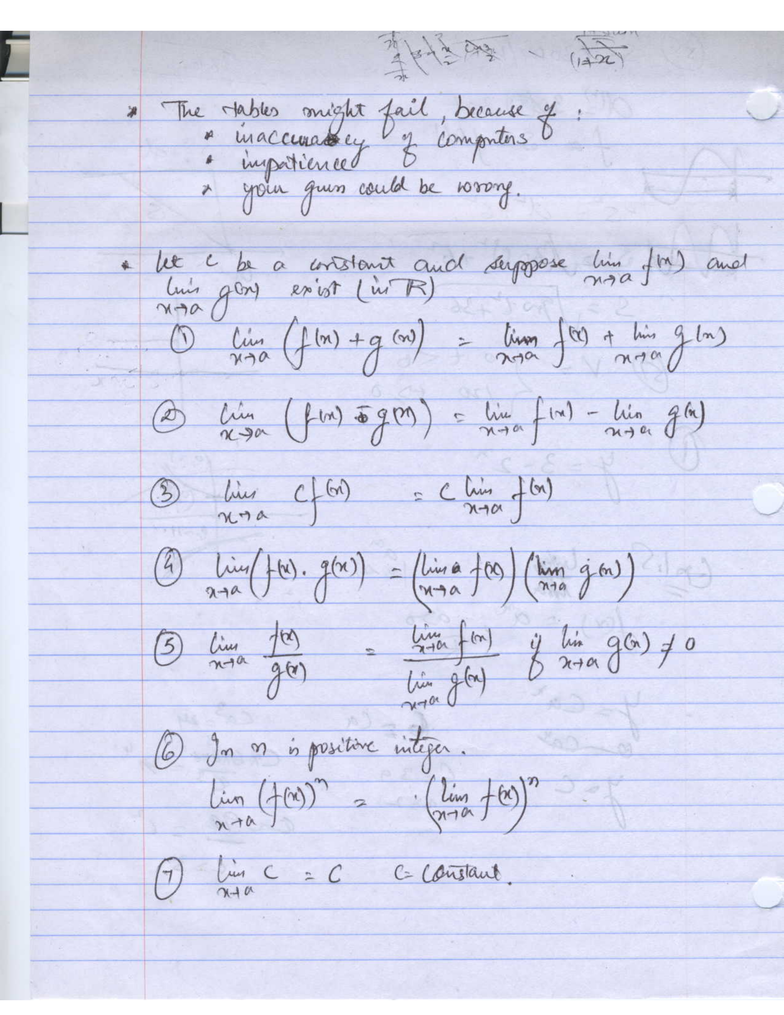 (1+x)
* The tables might fail, because of :
* inaccuracy of computers
* impatience
* your guess could be wrong.
* Let c be a constant and suppose lim x→a f(x) and
lim x→a g(x) exist (in R)
① lim x→a (f(x) + g(x)) = lim x→a f(x) + lim x→a g(x)
② lim x→a (f(x) - g(x)) = lim x→a f(x) - lim x→a g(x)
③ lim x→a c f(x) = c lim x→a f(x)
④ lim x→a (f(x) . g(x)) = (lim x→a f(x)) (lim x→a g(x))
⑤ lim x→a f(x)/g(x) = lim x→a f(x) / lim x→a g(x) if lim x→a g(x) ≠ 0
⑥ In n is positive integer.
lim x→a (f(x))^n = (lim x→a f(x))^n
⑦ lim x→a c = c c = constant.